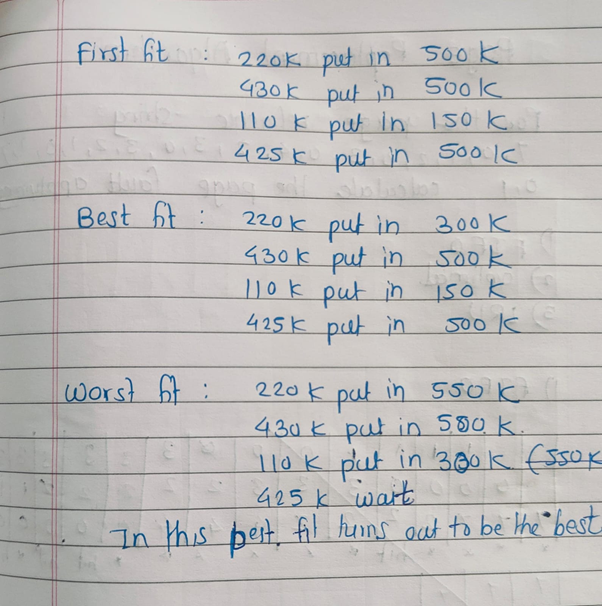 First fit : 220K put in 500K
430K put in 500K
110 K put in 150 K
425 K put in 500 K
Best fit : 220K put in 300K
430K put in 500K
110 K put in 150 K
425K put in 500 K
Worst fit : 220 K put in 550 K
430 K put in 500 K.
110 K put in 300K (550K
425 K wait
In this best fit turns out to be the best